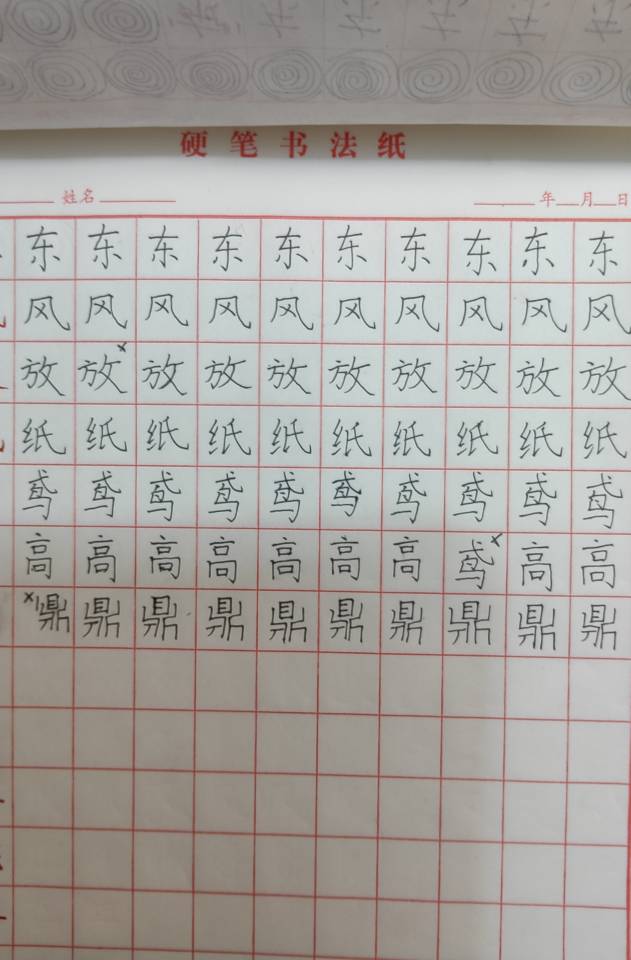 硬笔书法纸
姓名 年 月 日
东东东东东东东东东东
风风风风风风风风风风
放放×放放放放放放放放
纸纸纸纸纸纸纸纸纸纸
鸢鸢鸢鸢鸢鸢鸢鸢鸢鸢
高高高高高高高鸢×高高
×鼎鼎鼎鼎鼎鼎鼎鼎鼎鼎